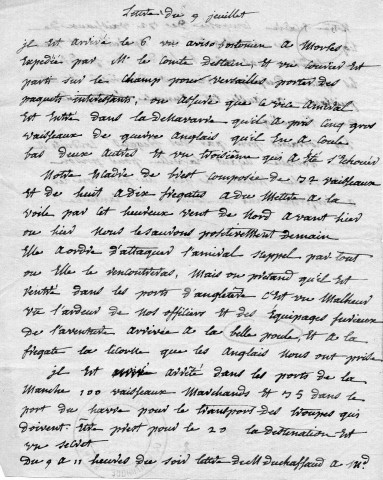 Lettre du 9 juillet
jl Est arrivé le 6 un aviso bostonien a Morles
Expedié par Mr le Comte destain Et un Courier Est
parti sur le Champ pour versailles porter des
paquets interessants, on assure que le vice Amiral
Est Entré dans la dellavarre qu'il a pris Cinq gros
vaisseaux de guerre Anglais qu'il En a Coulé
bas deux autres Et un troisieme qui a Eté s'Echouer
Notre Escadre de brest Composée de 32 vaisseaux
Et de huit a dix fregates a du Mettre a la
voile par cet heureux vent de Nord avant hier
ou hier Nous le saurons positivement demain
Elle a ordre d'attaquer l'amiral Keppel par tout
ou Elle le rencontreras, Mais on pretand qu'il Est
rentré dans les ports d'angleterre C'Est un Malheur
vu l'ardeur de nos officiers Et des Equipages furieux
de l'aventure arrivée a la belle poule, Et a la
fregate la licorne que les Anglais Nous ont prise
jl Est arrêté dans les ports de la
Manche 100 vaisseaux Marchands Et 75 dans le
port du havre pour le transport des troupes qui
doivent Être prest pour le 20 la destination Est
un secret
Du 9 a 11 heures du soir lettre de M duchaffaud a